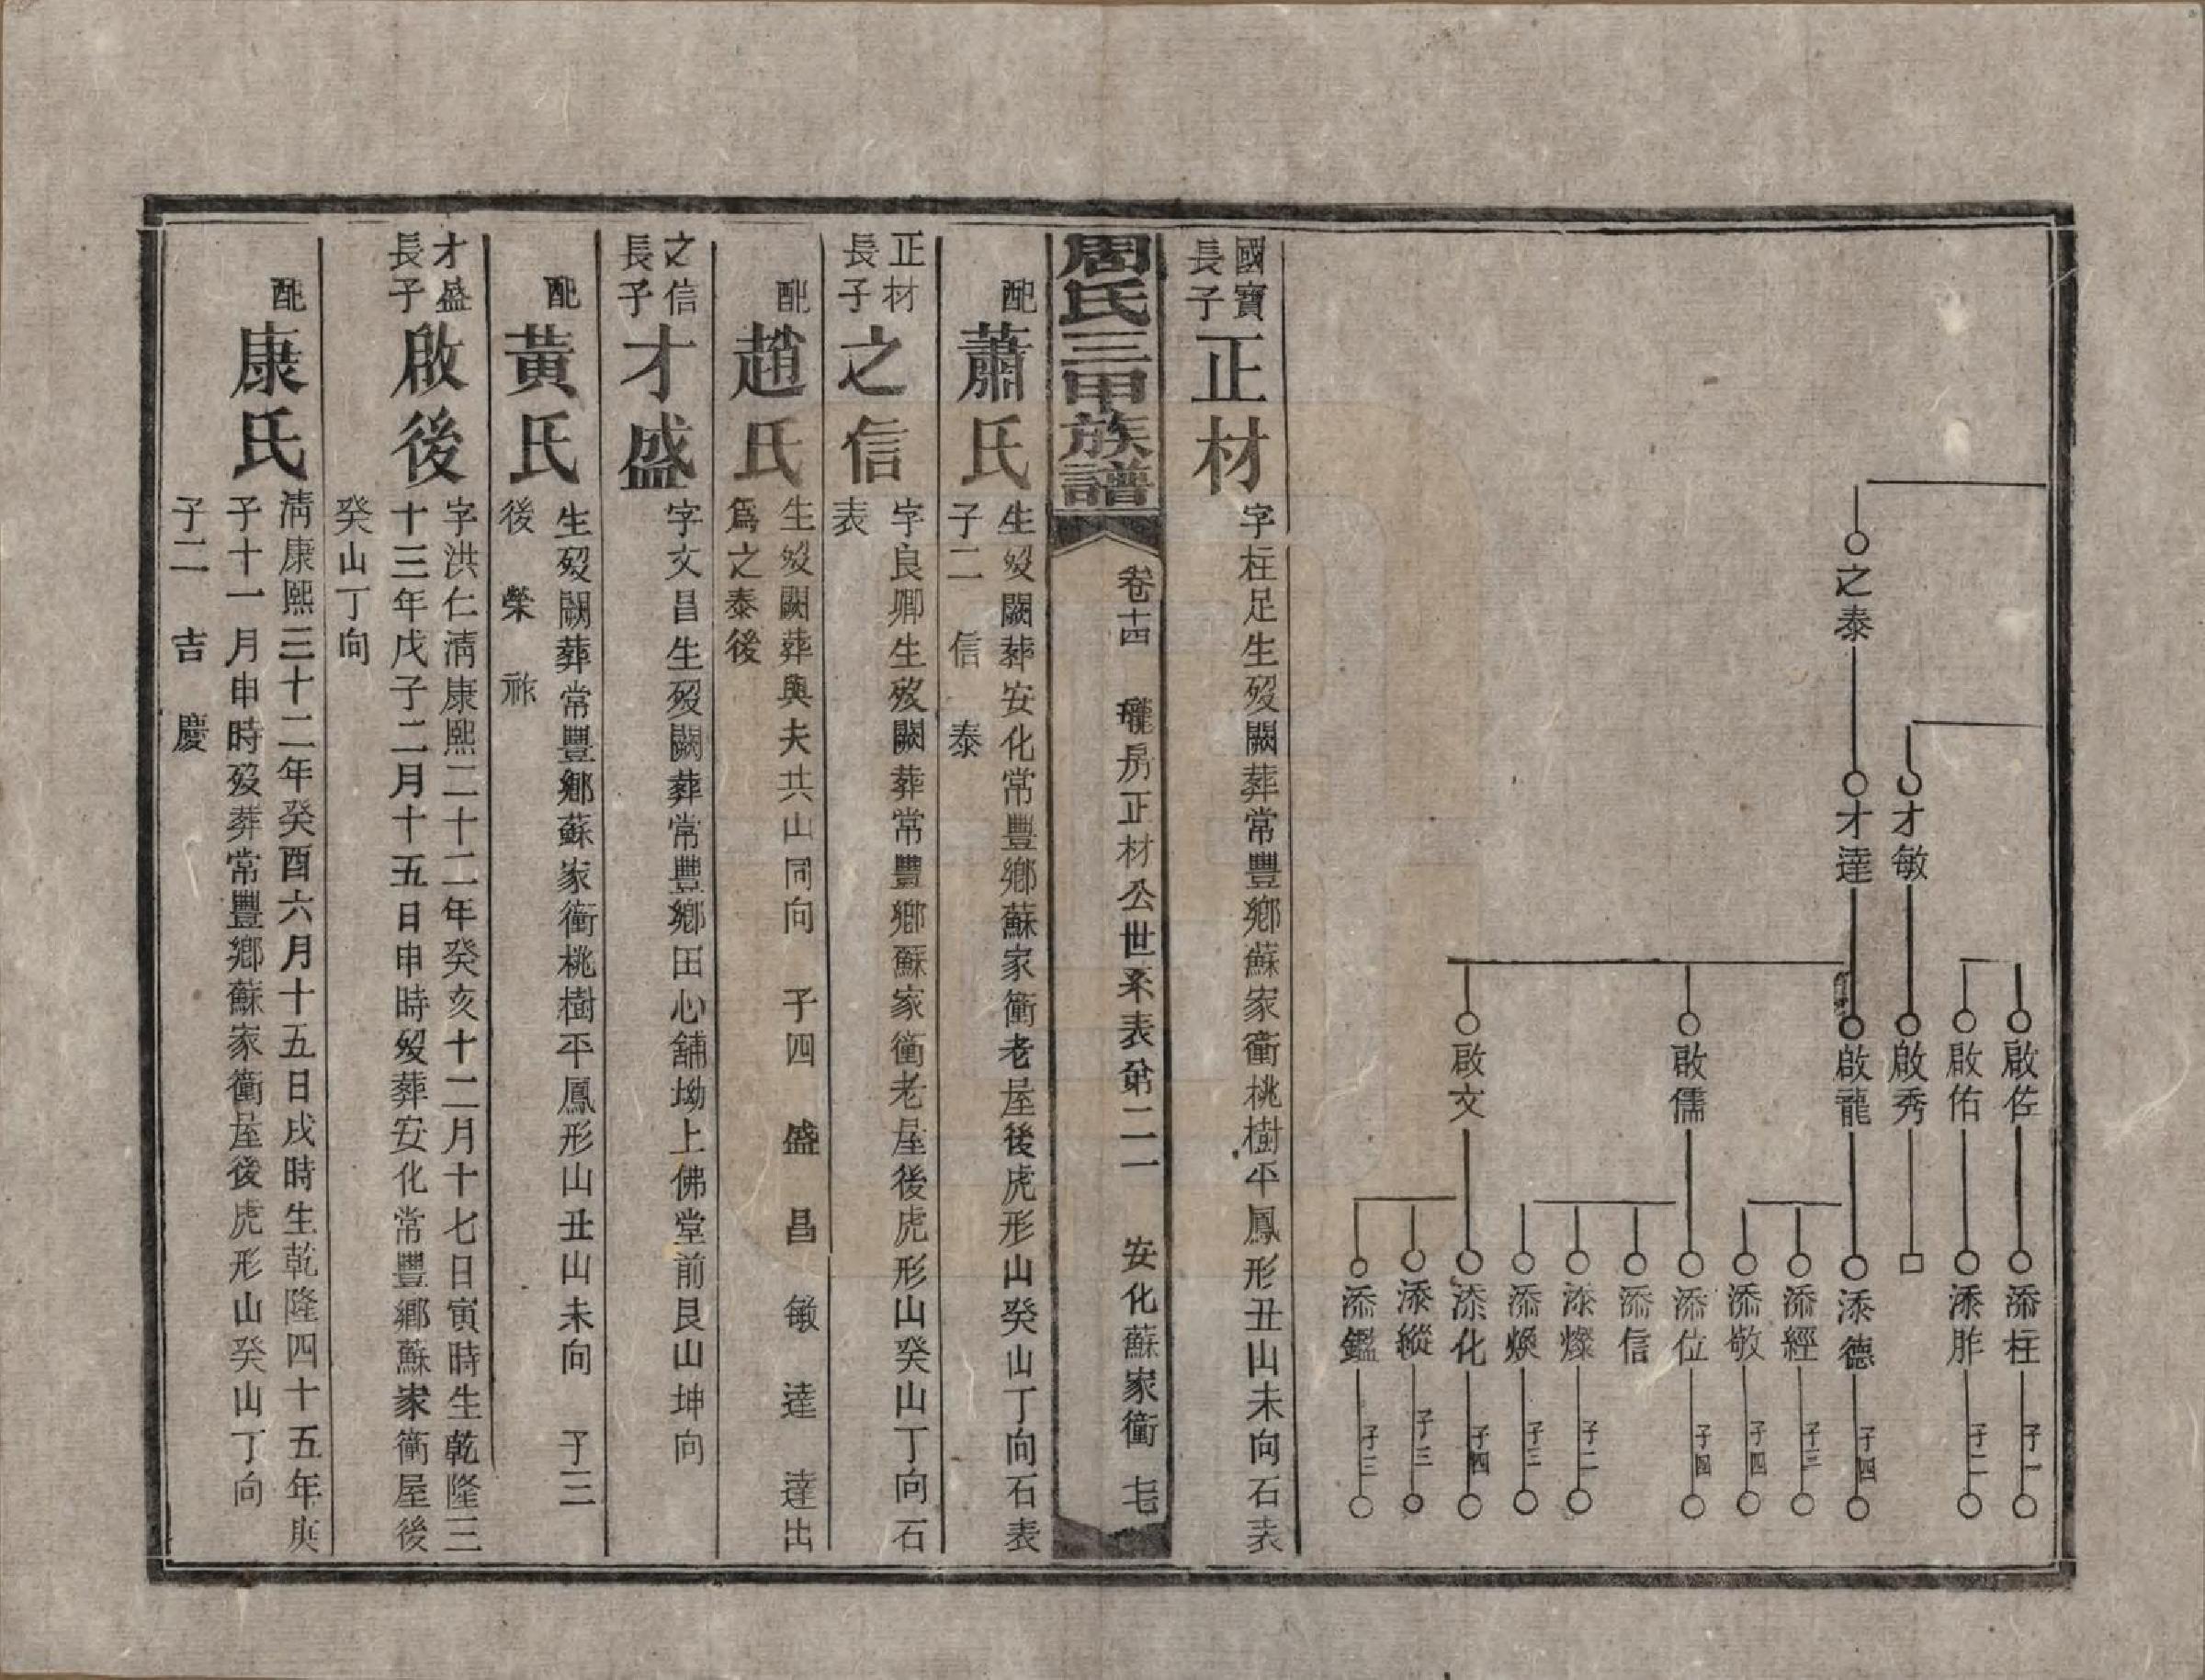 之泰
才敏
才達
啟佐
啟佑
啟秀
啟龍
啟儒
啟文
添柱
添胙
添德
添經
添敬
添位
添信
添燦
添煥
添化
添縱
添鑑
子一
子二
子四
子三
子四
子四
子二
子三
子四
子三
子三
國寶長子
正材
字柱足生歿闕葬常豐鄉蘇家衝桃樹平鳳形丑山未向石表
周氏三甲族譜
卷十四 瓏房正材公世系表第二一 安化蘇家衝 七
配
蕭氏
生歿闕葬安化常豐鄉蘇家衝老屋後虎形山癸山丁向石表
子二 信 泰
正材長子
之信
字良卿生歿闕葬常豐鄉蘇家衝老屋後虎形山癸山丁向石
表
配
趙氏
生歿闕葬與夫共山同向 子四 盛 昌 敏 達 達出
爲之泰後
之信長子
才盛
字文昌生歿闕葬常豐鄉田心舖坳上佛堂前艮山坤向
配
黃氏
生歿闕葬常豐鄉蘇家衝桃樹平鳳形山丑山未向 子三
後 榮 祚
才盛長子
啟後
字洪仁清康熙二十二年癸亥十二月十七日寅時生乾隆三
十三年戊子二月十五日申時歿葬安化常豐鄉蘇家衝屋後
癸山丁向
配
康氏
清康熙三十二年癸酉六月十五日戌時生乾隆四十五年庚
子十一月申時歿葬常豐鄉蘇家衝屋後虎形山癸山丁向
子二 吉 慶